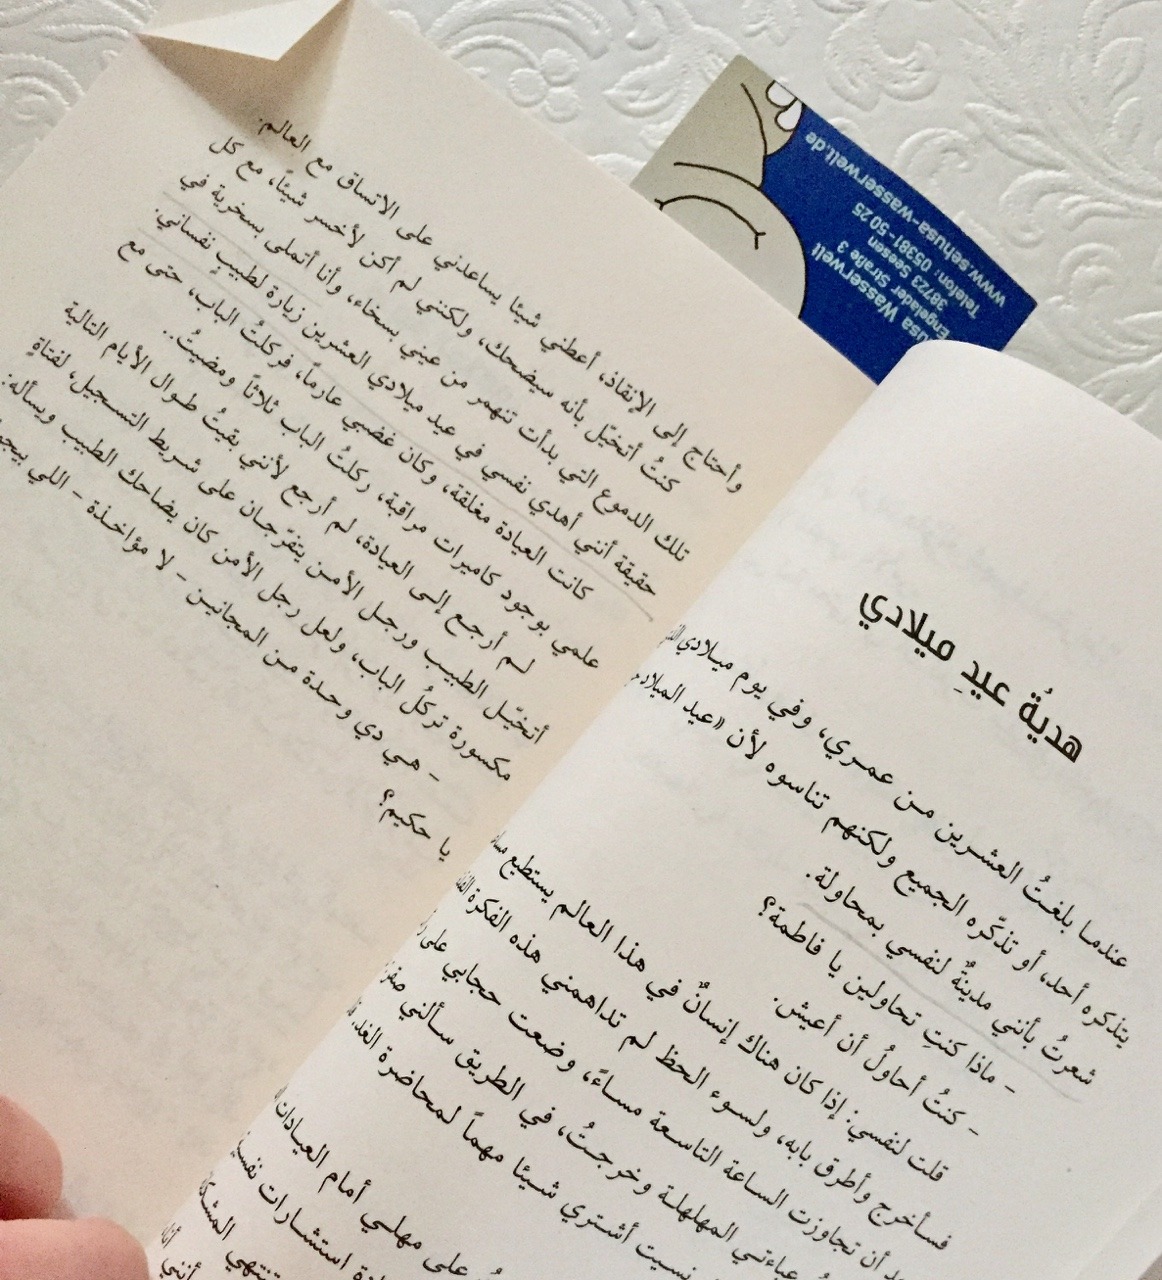 هديةُ عيدِ ميلادي
عندما بلغتُ العشرين من عمري، وفي يوم ميلادي
يتذكره أحد، أو تذكّره الجميع ولكنهم تناسوه لأن «عيد الميلاد
شعرتُ بأنني مدينةٌ لنفسي بمحاولة.
- ماذا كنتِ تحاولين يا فاطمة؟
- كنتُ أحاولُ أن أعيش.
قلت لنفسي: إذا كان هناك إنسانٌ في هذا العالم يستطيع
فسأخرج وأطرق بابه، ولسوء الحظ لم تداهمني هذه الفكرة
أن تجاوزت الساعة التاسعة مساءً، وضعت حجابي على
عباءتي المهلهلة وخرجتُ، في الطريق سألني
نسيت أشتري شيئا مهماً لمحاضرة الغد،
على مهلي أمام العيادات
استشارات
تنتهي
أنني
وأحتاج إلى الإنقاذ، أعطني شيئا يساعدني على الاتساق مع العالم.
كنتُ أتخيّل بأنه سيضحك، ولكنني لم أكن لأخسر شيئاً، مع كل
تلك الدموع التي بدأت تنهمر من عيني بسخاء، وأنا أتملى بسخرية في
حقيقة أنني أهدي نفسي في عيد ميلادي العشرين زيارة لطبيبٍ نفساني.
كانت العيادة مغلقة، وكان غضبي عارماً، فركلتُ الباب، حتى مع
علمي بوجود كاميرات مراقبة، ركلتُ الباب ثلاثاً ومضيتُ..
لم أرجع إلى العيادة، لم أرجع لأنني بقيتُ طوال الأيام التالية
أتخيّل الطبيب ورجل الأمن يتفرّجان على شريط التسجيل، لفتاةٍ
مكسورة تركلُ الباب، ولعل رجل الأمن كان يضاحك الطبيب ويسأله:
- هي دي وحدة من المجانين - لا مؤاخذة - اللي
يا حكيم؟
usa Wasserwelt
Engelader Straße 3
38723 Seesen
Telefon: 05381-50 25
www.sehusa-wasserwelt.de